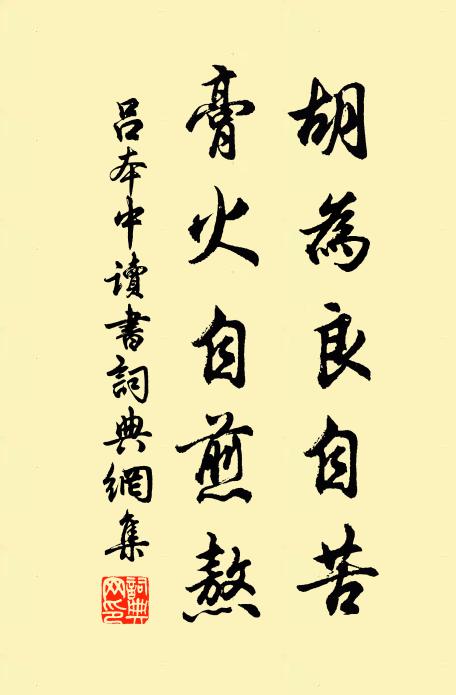 胡為良自苦
膏火自煎熬
吕本中讀書詞典網集
詞典網印